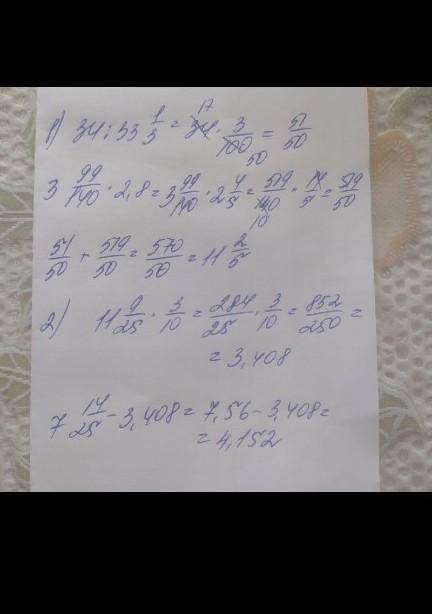 1) 34 : 33 1/3 = 34 17 · 3/100 50 = 51/50
3 99/140 · 2,8 = 3 99/140 · 2 4/5 = 519/140 10 · 14/5 = 519/50
51/50 + 519/50 = 570/50 = 11 2/5
2) 11 9/25 · 3/10 = 284/25 · 3/10 = 852/250 =
= 3,408
7 14/25 - 3,408 = 7,56 - 3,408 =
= 4,152